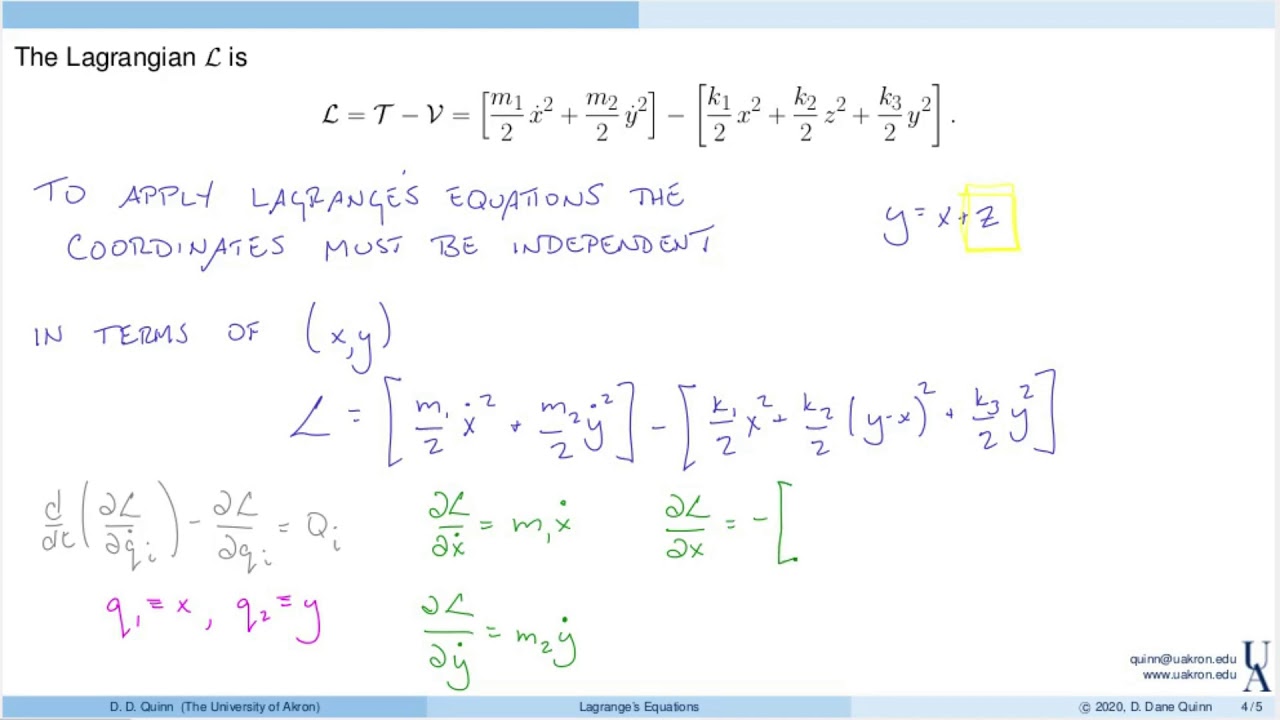 The Lagrangian ℒ is
ℒ = 𝒯 − 𝒱 = [m₁/2 ẋ² + m₂/2 ẏ²] − [k₁/2 x² + k₂/2 z² + k₃/2 y²].
TO APPLY LAGRANGE'S EQUATIONS THE
COORDINATES MUST BE INDEPENDENT
y = x + z
IN TERMS OF (x,y)
ℒ = [m₁/2 ẋ² + m₂/2 ẏ²] − [k₁/2 x² + k₂/2 (y-x)² + k₃/2 y²]
d/dt (∂ℒ/∂q̇ᵢ) − ∂ℒ/∂qᵢ = Qᵢ
∂ℒ/∂ẋ = m₁ẋ
∂ℒ/∂x = −[
q₁ ≡ x, q₂ ≡ y
∂ℒ/∂ẏ = m₂ẏ
quinn@uakron.edu
www.uakron.edu
UA
D. D. Quinn (The University of Akron)
Lagrange's Equations
© 2020, D. Dane Quinn
4 / 5